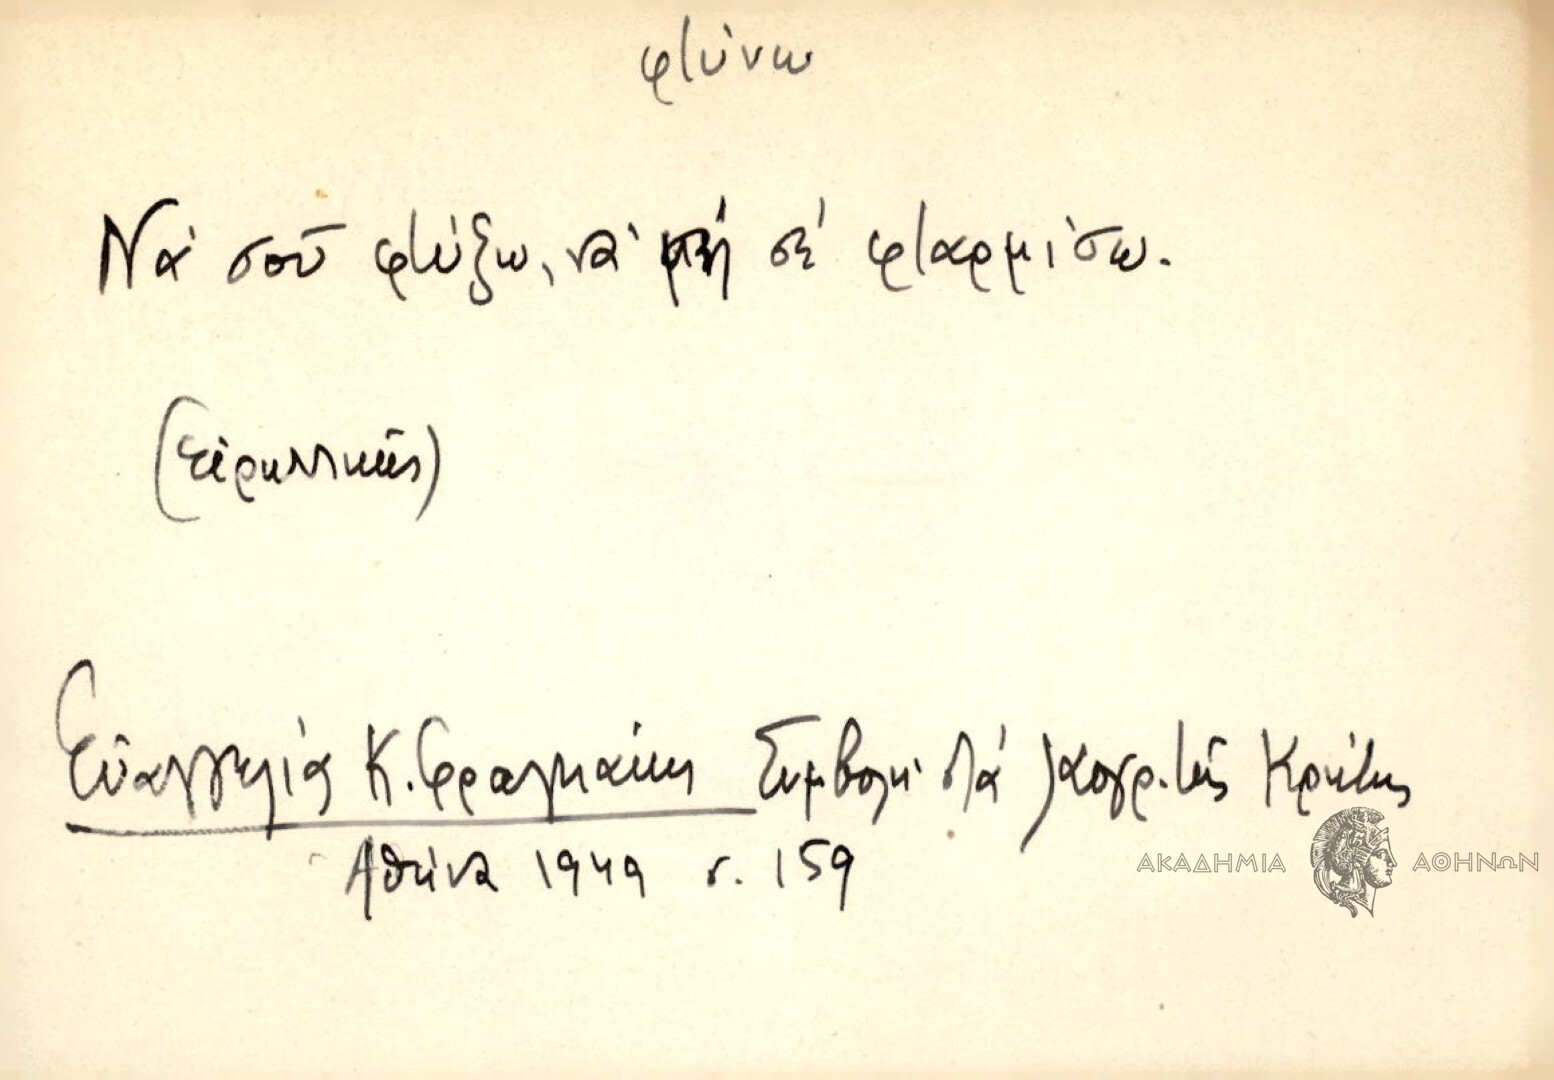 φτύνω
Νὰ σοῦ φτύξω, νὰ μὴ σὲ φταρμίσω.
(Εἰρωνικῶς)
Εὐαγγελίας Κ. Φραγκάκη Συμβολὴ στὰ λαογρ. τῆς Κρήτης
Ἀθήνα 1949 σ. 159
ΑΚΑΔΗΜΙΑ ΑΘΗΝΩΝ